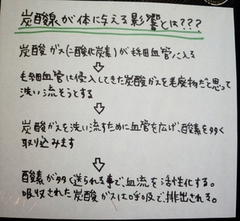 炭酸泉が体に与える影響とは???
炭酸ガス(二酸化炭素)が毛細血管に入る
毛細血管に侵入してきた炭酸ガスを老廃物だと思って
洗い流そうとする
炭酸ガスを洗い流すために血管を広げ、酸素を多く
取り込みます
酸素が多く送られる事で、血流を活性化する。
吸収された炭酸ガスは呼吸で、排出される。